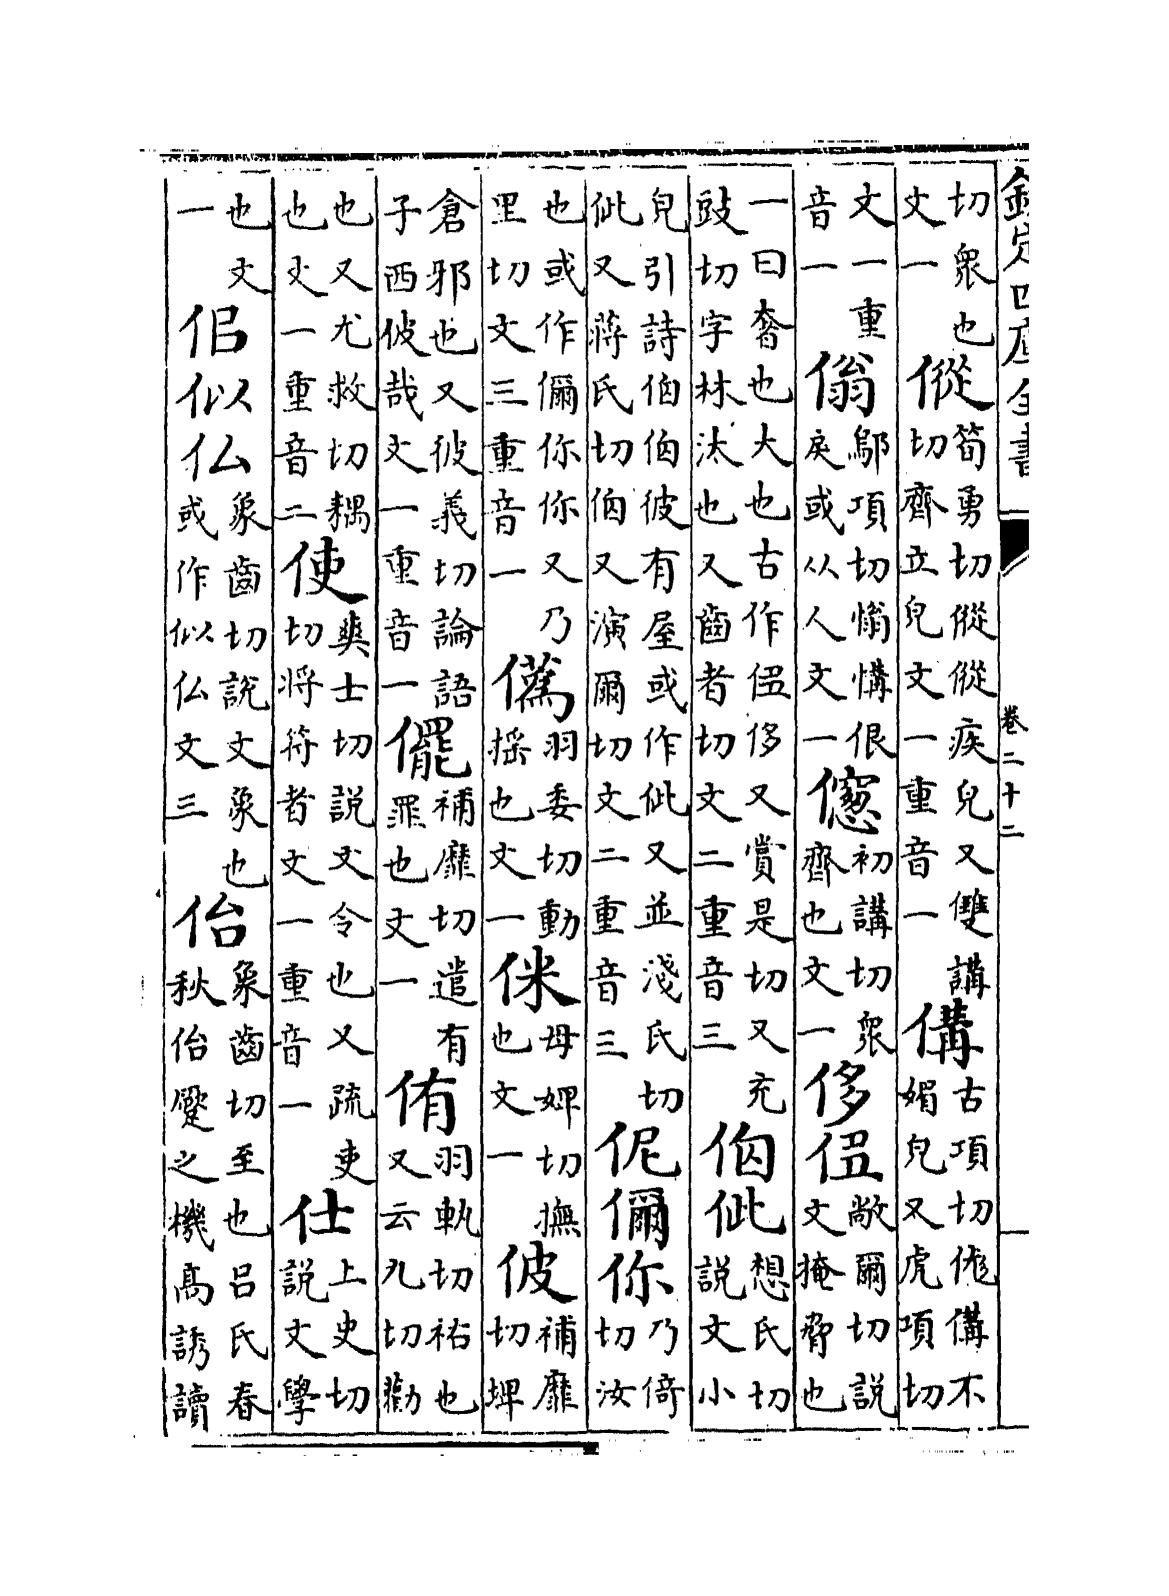 欽定四庫全書 卷二十二
切衆也文一傱筍勇切傱傱疾皃又雙講切齊立皃文一重音一傋古項切傂傋不媚皃又虎項切
文一重音一傟鄔項切慃佷戾或从人文一初講切衆齊也文一侈㑥敞爾切説文掩脅也
一曰奢也大也古作㑥侈又賞是切又充豉切字林汰也又齒者切文二重音三佌想氏切説文小
皃引詩彼有屋或作佌又並淺氏切佌又蔣氏切又演爾切文二重音三伲儞你乃倚切汝
也或作儞你你又乃里切文三重音一羽委切動搖也文一侎母婢切撫也文一佊補靡切埤
倉邪也又彼義切論語子西佊哉文一重音一補靡切遣有罪也文一侑羽軌切祐也又云九切勸
也又尤救切耦也文一重音二使爽士切説文令也又疏吏切將符者文一重音一仕上史切説文學
也文一佀似仏象齒切説文象也或作似仏文三佁象齒切至也吕氏春秋佁蹷之機高誘讀